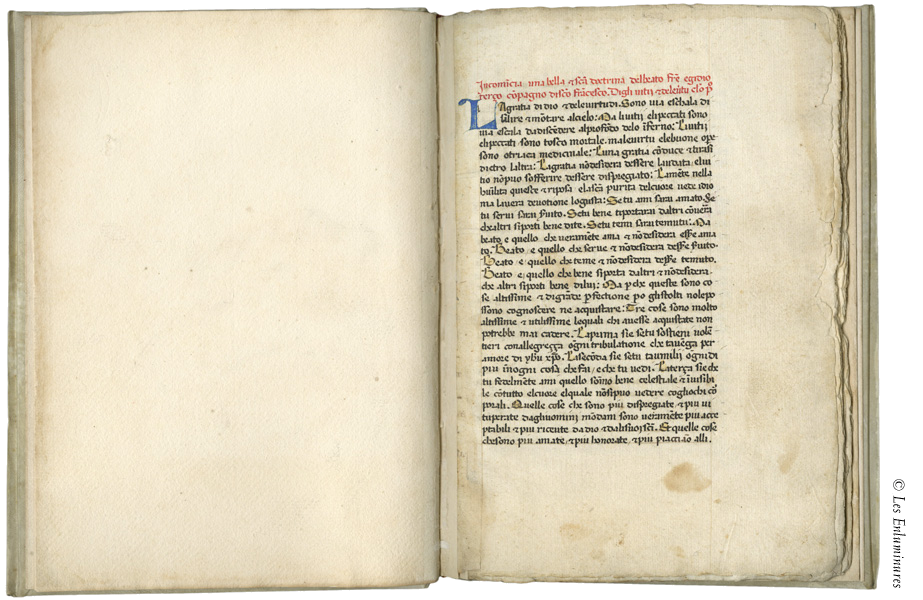 Incomĩcia una bella & scã doctrina delbeato frẽ egidio
terço cõpagno disco frãcesco. Degli uitii & deleuirtu clo pº
LAgratia di dio & deleuirtudi. Sono uia eschala di
salire & mõtare alcielo: Ma liuitii elipeccati sono
uia escala da discẽdere alprofõdo delo ĩferno: Liuitii
elipeccati sono tosco mortale. maleuirtu elebuone opẽ
sono otriaca medicinale: Luna gratia cõduce & tirasi
dietro laltra: Lagratia nõdesidera dessere laudata: eluī
tio nõpuo sofferire dessere dispregiato: Lamẽte nella
humilita quiesce & riposa elascã purita delcuore uede idio
ma lauera deuotione logusta: Se tu ami sarai amato. Se
tu serui sarai seruito. Setu bene tiportarai daltri cõuerra
che altri siporti bene dite. Setu temi sarai temuto: Ma
beato e quello che ueramẽte ama & nõdesidera essẽ ama
to. Beato e quello che serue & nõdesidera dessẽ seruito.
Beato e quello che teme & nõdesidera dessẽ temuto.
Beato e quello che bene siporta daltri & nõdesidera.
che altri siporti bene dilui: Ma pche queste sono co
se altissime & digrãde pfectione po glistolti nolepo
ssono cognoscere ne acquistare: Tre cose sono molto
altissime & utilissime lequali chi auesse acquistate non
potrebbe mai cadere. Laprima sie setu sostieni uolẽ
tieri conallegreça ogni tribulatione che tauẽga per
amore di yħu xp̃o. Lasecõda sie setu taumilii ogni di
piu ĩnogni cosa che fai, e che tu uedi. Laterça sie che
tu fedelmẽte ami quello somo bene celestiale & ĩuisibi
le cõtutto elcuore elquale nõsipuo uedere cogliochi cõ
porali. Quelle cose che sono piu dispregiate & piu ui
tuperate dagliuomini mõdani sono ueramẽte piu acce
ptabili & piu riceute da dio & dalisuoi scĩ. Et quelle cose
chesono piu amate, & piu honorate & piu piacciãо alli.
© Les Enluminures